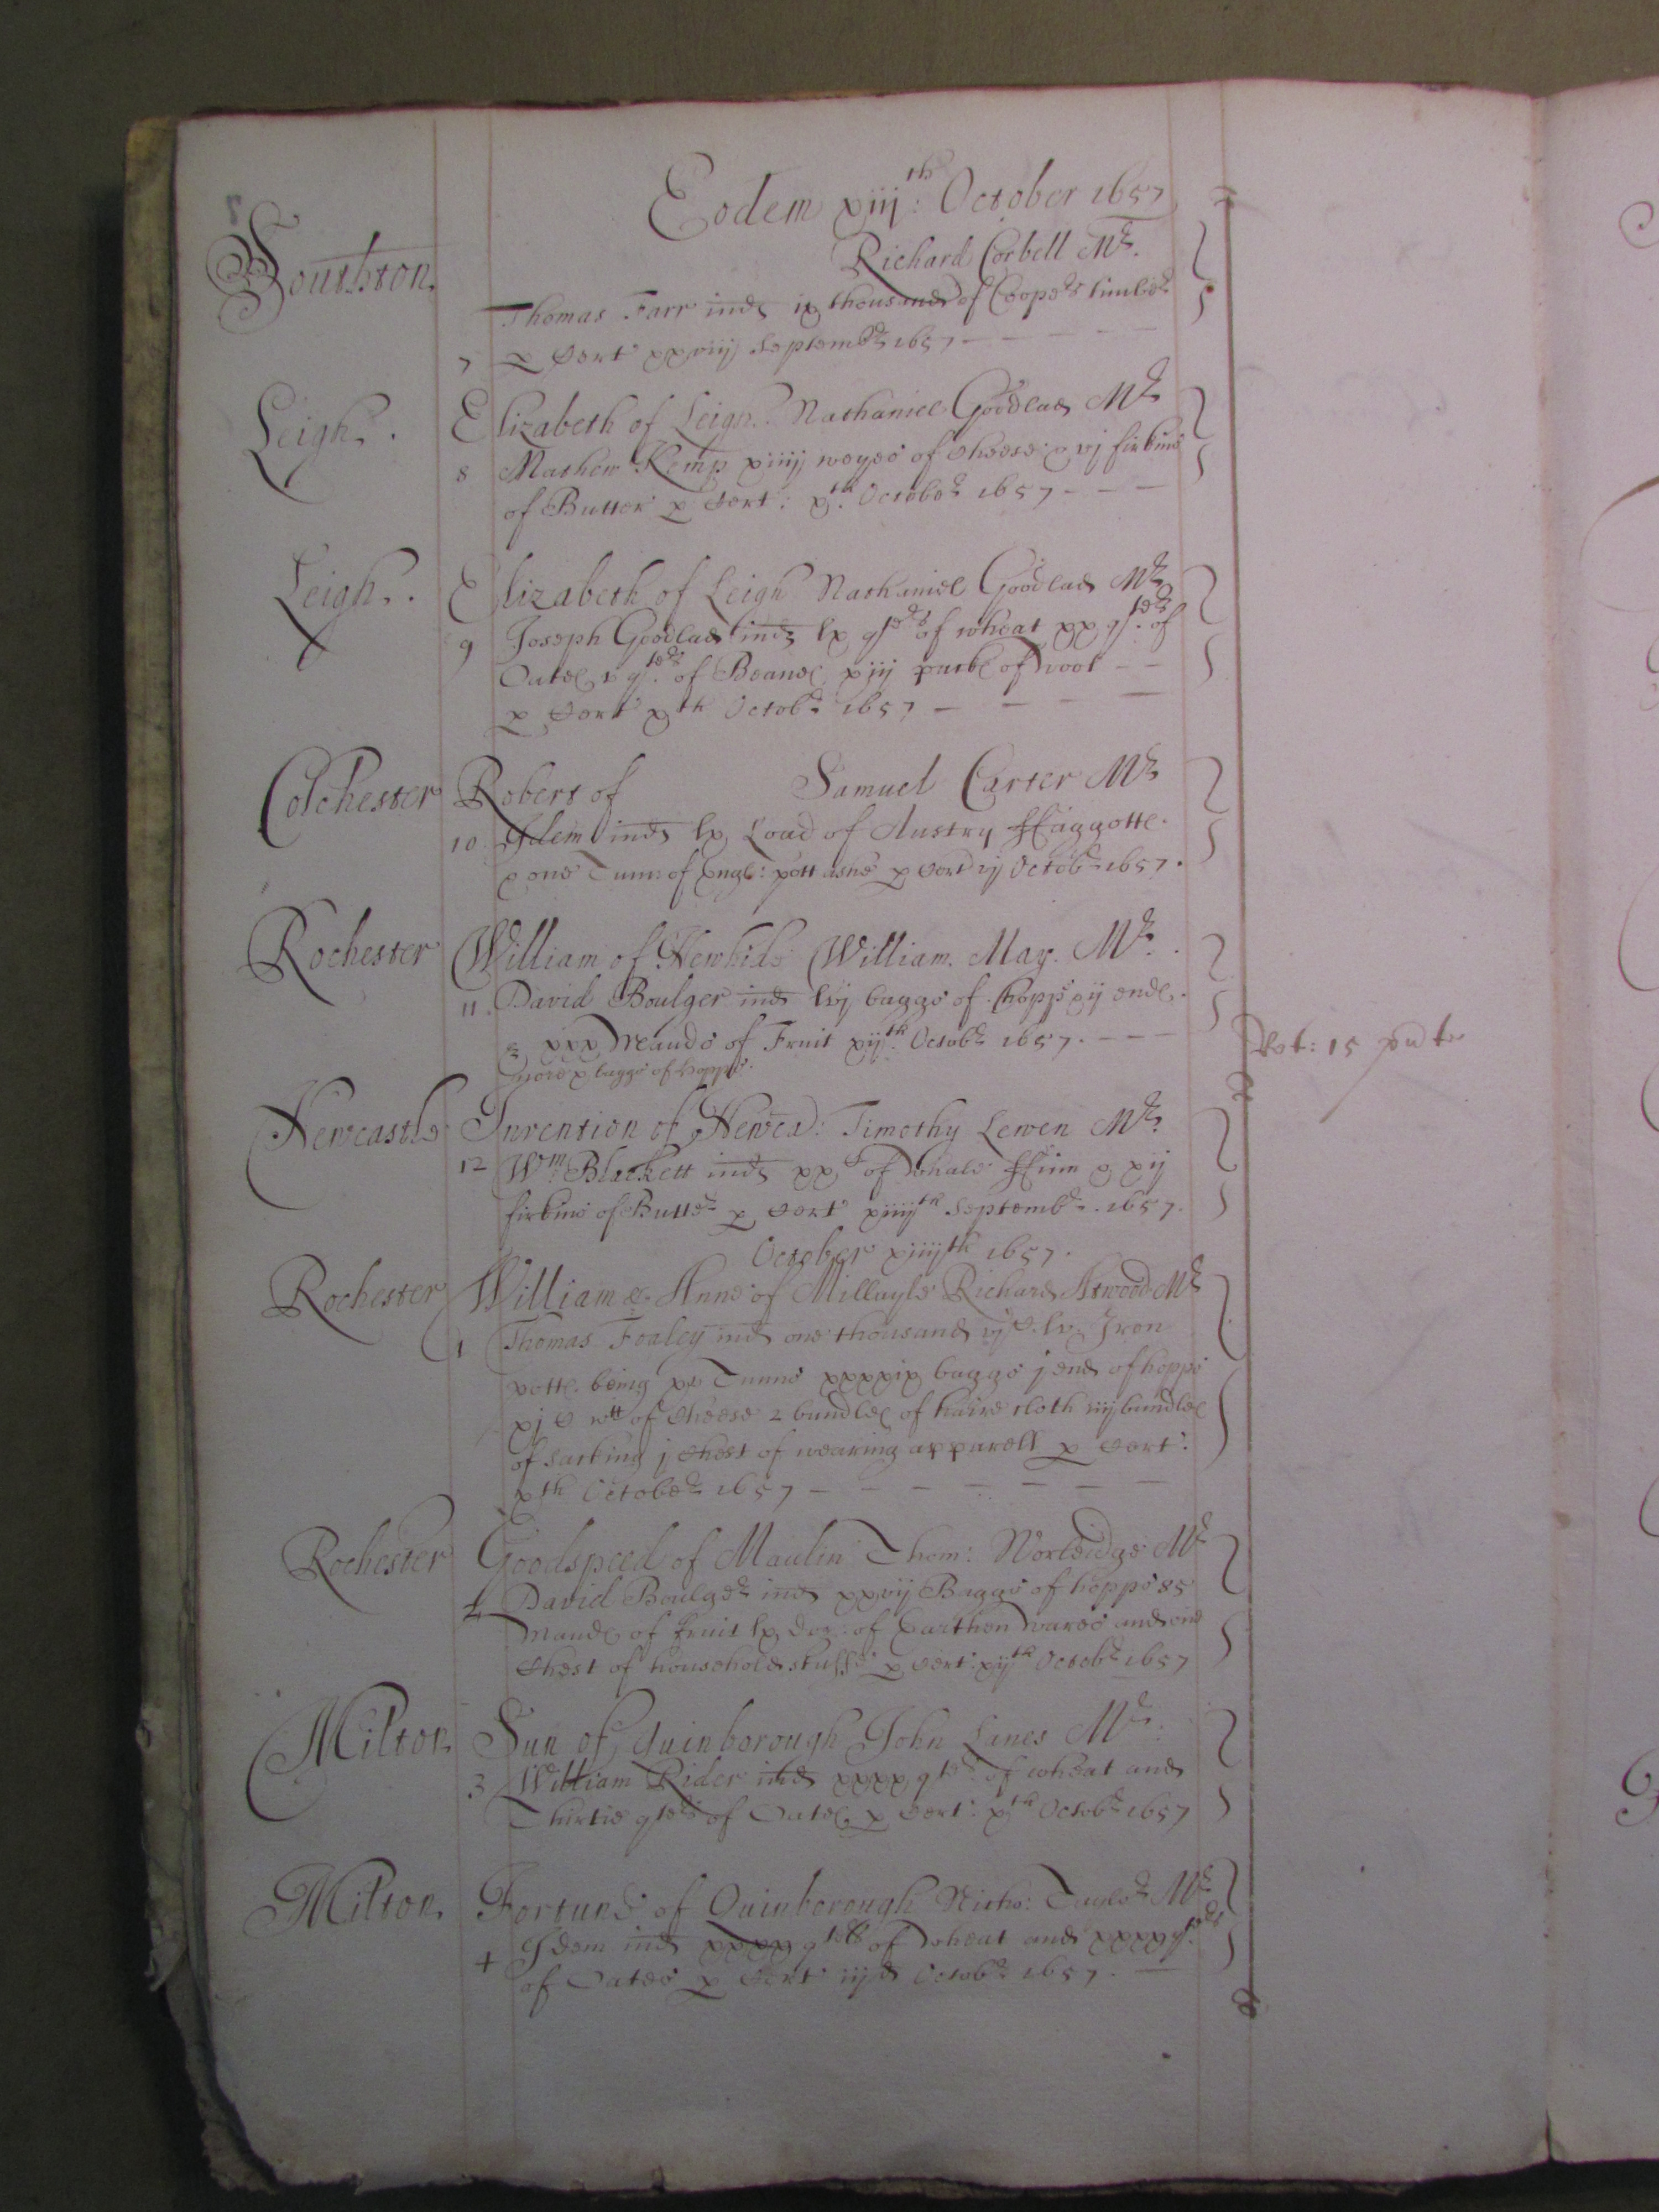 Eodem xiij:th October 1657
Southton
Richard Corbell Mr.
Thomas Farr inds ix thousands of Coopers timber
7 p Cert xxviij Septembr 1657 - - - -
Leigh. Elizabeth of Leigh. Nathaniel Goodlad Mr
8 Mathew Kemp xiiij weyes of Cheese & vj firkins
of Butter p Cert: x:th October 1657 - - -
Leigh. Elizabeth of Leigh Nathaniel Goodlad Mr
9 Joseph Goodlad inds lx qters of wheat xx qters of
Oates v qters of Beanes xiij of wool - -
p Cert xth Octobr 1657 - - - -
Colchester Robert of Samuel Carter Mr
10 Idem inds lx Load of Austry ffaggotts.
& one Tunn: of Engl: pott ashe p Cert ij Octobr 1657.
Rochester William of Newhide William. May. Mr.
11 David Boulger inds lvj baggs of hopps xij ends.
& xxx Maunds of Fruit xij:th Octobr 1657. - - -
more x baggs of hopps.
Newcastle Invention of Newca: Timothy Lewen Mr
12 Wm Blackett inds xx C of whale ffinn & xij
firkins of Butter p Cert xiiijth Septembr. 1657.
October xiiijth 1657.
Rochester William & Anne of Millayle Richard Atwood Mr
1 Thomas Foaley inds one thousand ij C. lv Iron
potts. being xv Tunns xxxxix baggs j end of hopps
xj C wtt of Cheese 2 bundles of haire cloth iiij bundles
of sacking j Chest of wearing apparell p Cert:
xth October 1657 - - - - - - -
Rochester Goodspeed of Maulin Thom: Worledge Mr
2 David Boulger inds xxvij Baggs of hopps 85
Maunds of fruit lx doz: of Earthen wares and one
Chest of household stuffe p Cert: xijth Octobr 1657
Milton Sun of Quinborough John Lanes Mr.
3 William Rider inds xxxx qters of wheat and
Thirtie qters of Oates p Cert: xth Octobr 1657
Milton Fortune of Quinborough Nicho: Taylor Mr
4 Idem inds xxxx qters of wheat and xxxx qters
of Oates p Cert iijd Octobr 1657. -